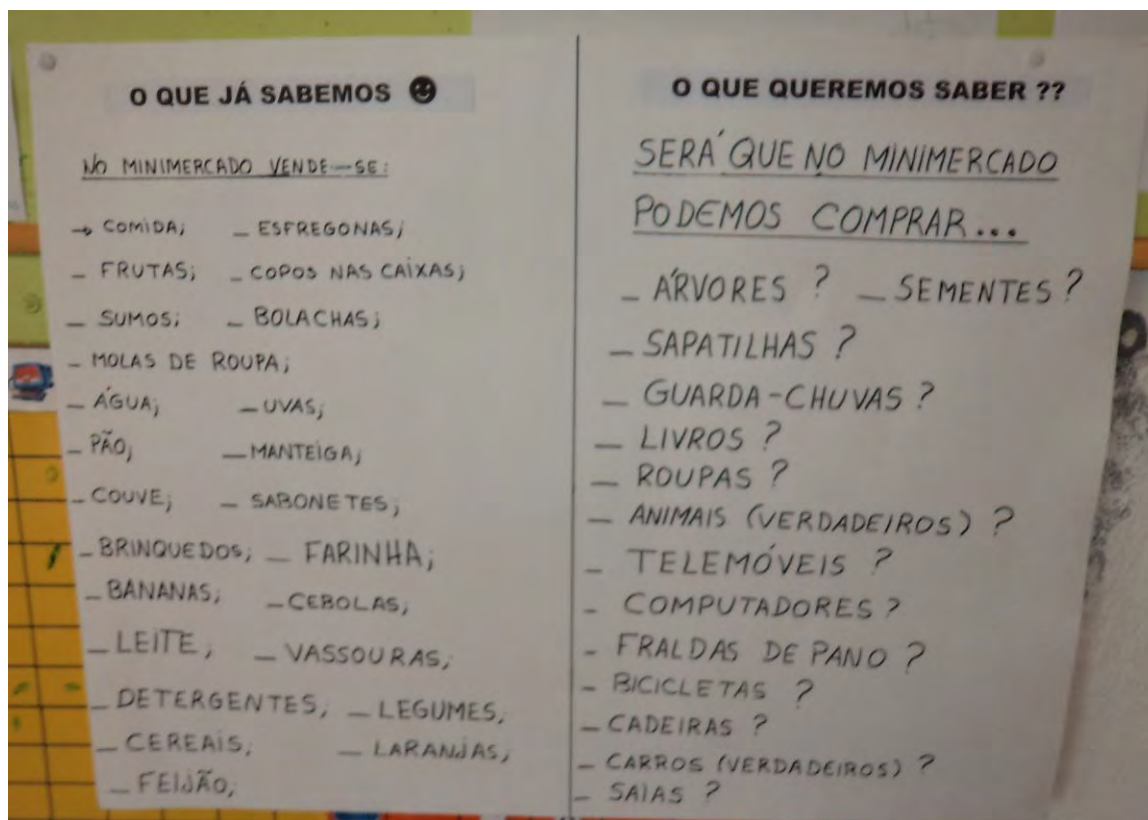 O QUE JÁ SABEMOS
NO MINIMERCADO VENDE-SE:
→ COMIDA; _ ESFREGONAS;
_ FRUTAS; _ COPOS NAS CAIXAS;
_ SUMOS; _ BOLACHAS;
_ MOLAS DE ROUPA;
_ ÁGUA; _ UVAS;
_ PÃO; _ MANTEIGA;
_ COUVE; _ SABONETES;
_ BRINQUEDOS; _ FARINHA;
_ BANANAS; _ CEBOLAS;
_ LEITE; _ VASSOURAS;
_ DETERGENTES; _ LEGUMES;
_ CEREAIS; _ LARANJAS;
_ FEIJÃO;
O QUE QUEREMOS SABER ??
SERÁ QUE NO MINIMERCADO
PODEMOS COMPRAR...
_ ÁRVORES ? _ SEMENTES ?
_ SAPATILHAS ?
_ GUARDA-CHUVAS ?
_ LIVROS ?
_ ROUPAS ?
_ ANIMAIS (VERDADEIROS) ?
_ TELEMÓVEIS ?
_ COMPUTADORES ?
- FRALDAS DE PANO ?
- BICICLETAS ?
_ CADEIRAS ?
_ CARROS (VERDADEIROS) ?
_ SAIAS ?